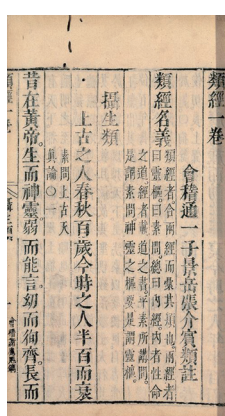 類經一卷
會稽通一子景岳張介賓類註
類經名義
類經者合兩經而彙其類也兩經者
曰靈樞曰素問總曰內經內者性命
之道經者載道之書平素所講問
是謂素問神靈之樞要是謂靈樞
攝生類
上古之人春秋百歲今時之人半百而衰
素問上古天
真論〇一
昔在黃帝生而神靈弱而能言幼而徇齊長而